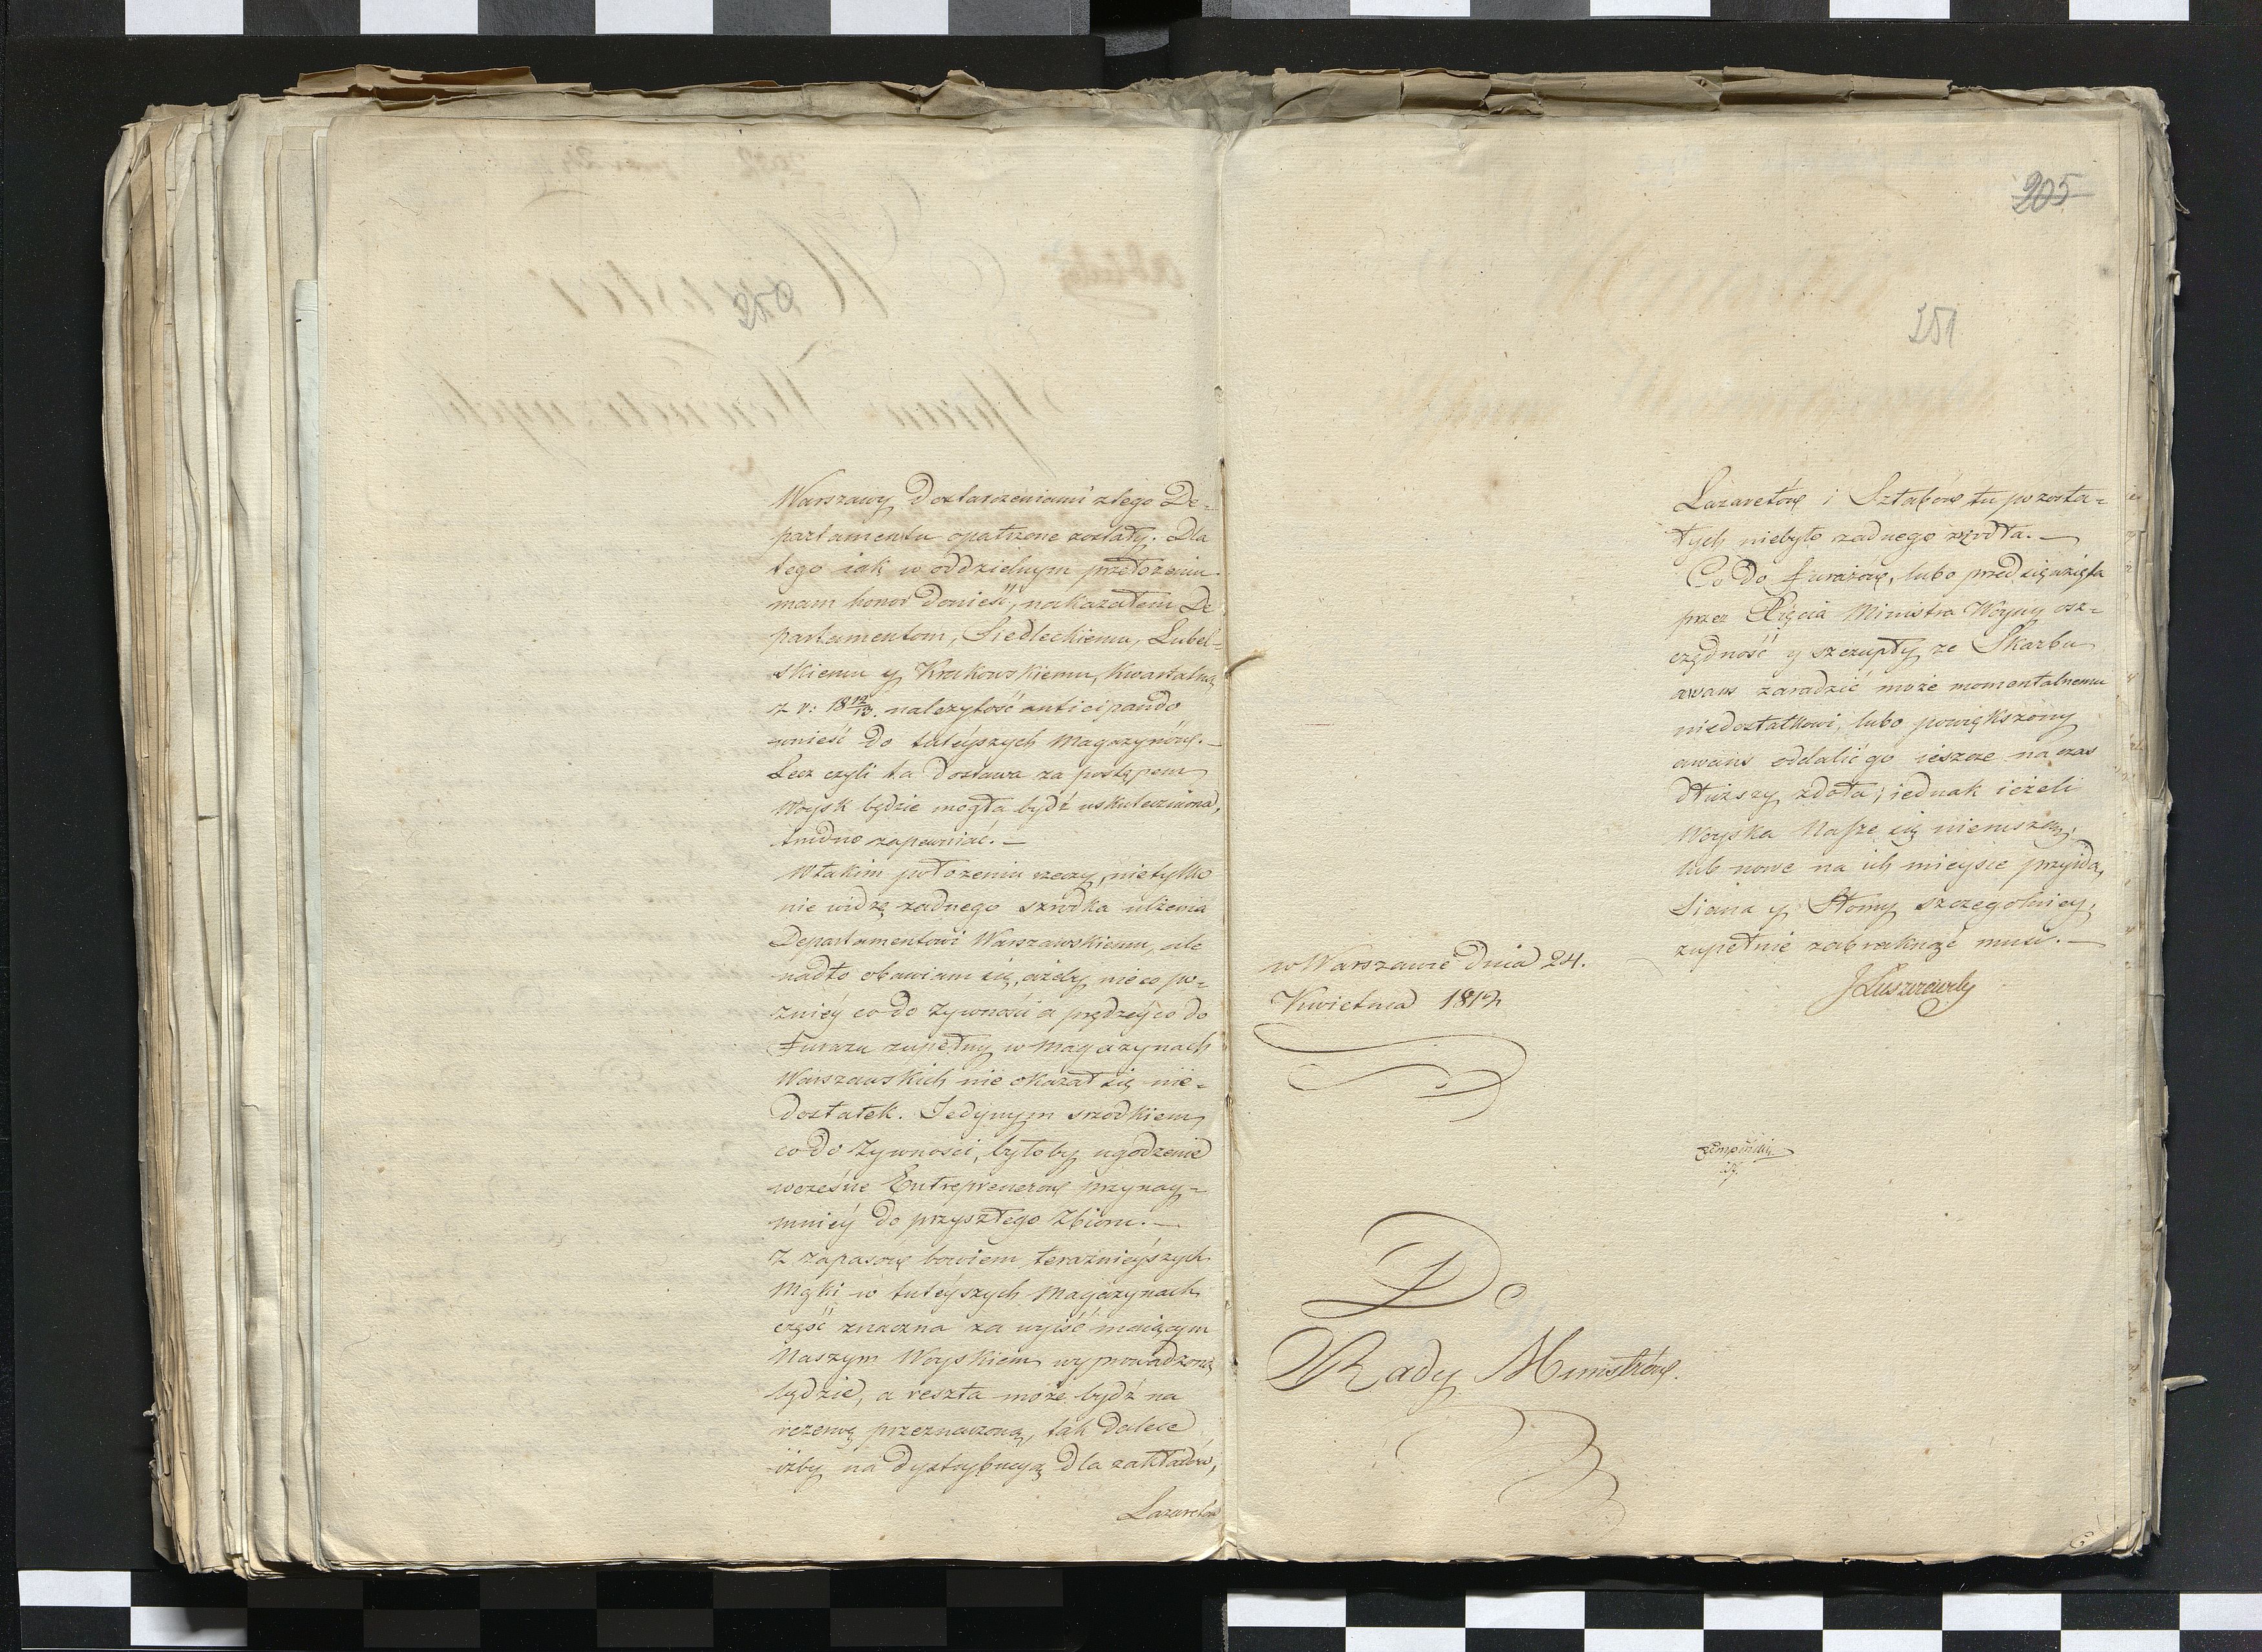 Warszawy dostarczeniami z tego De-
partamentu opatrzone zostały. Dla
tego iak w oddzielnym przełożeniu
mam honor donieść, nakazałem De
partamentom, Siedleckiemu, Lubel-
skiemu y Krakowskiemu, kwartalną
z r: 18 12/13. należytość anticipando
wnieść do tutéyszych Magazynów.—
Lecz czyli ta dostawa za postępem
Woysk będzie mogła bydź uskuteczniona,
trudno zapewniać.—
W takim położeniu rzeczy, nietylko
nie widzę żadnego szrodka ulżenia
Departamentowi Warszawskiemu, ale
nadto obawiam się, ażeby nieco po-
zniéy co do żywności a prędzéy co do
Furażu zupełny w Magazynach
Warszawskich nie okazał się nie-
dostatek. Jedynym srzodkiem,
co do Żywności, byłoby ugodzenie
wcześne Entreprenerów przynay-
mniéy do przyszłego Zbioru.—
Z zapasów bowiem teraźnieyszych
Mąki w tutéyszych Magazynach
część znaczna za wyiść maiącym
Naszym Woyskiem wyprowadzoną
będzie, a reszta może bydź na
rezerwę przeznaczoną, tak dalece
iżby na dystrybucyą dla zakładów,
Lazaretów
205
251
Lazaretów i Sztabów tu pozosta-
łych niebyło żadnego źrzodła.—
Co do Furażów, lubo przedsięwzięta
przez Xięcia Ministra Woyny osz-
czędność y szczupły ze Skarbu
awans zaradzić może momentalnemu
niedostatkowi, lubo powiększony
awans oddalić go ieszcze na czas
dłuższy zdoła; iednak ieżeli
Woyska Nasze się nieruszą,
lub nowe na ich mieysce przyidą,
Siana y Słomy szczegolniey,
zupełnie zabraknąć musi.—
w Warszawie dnia 24.
Kwietnia 1812
JŁuszczewski
Do
Rady Ministrów.